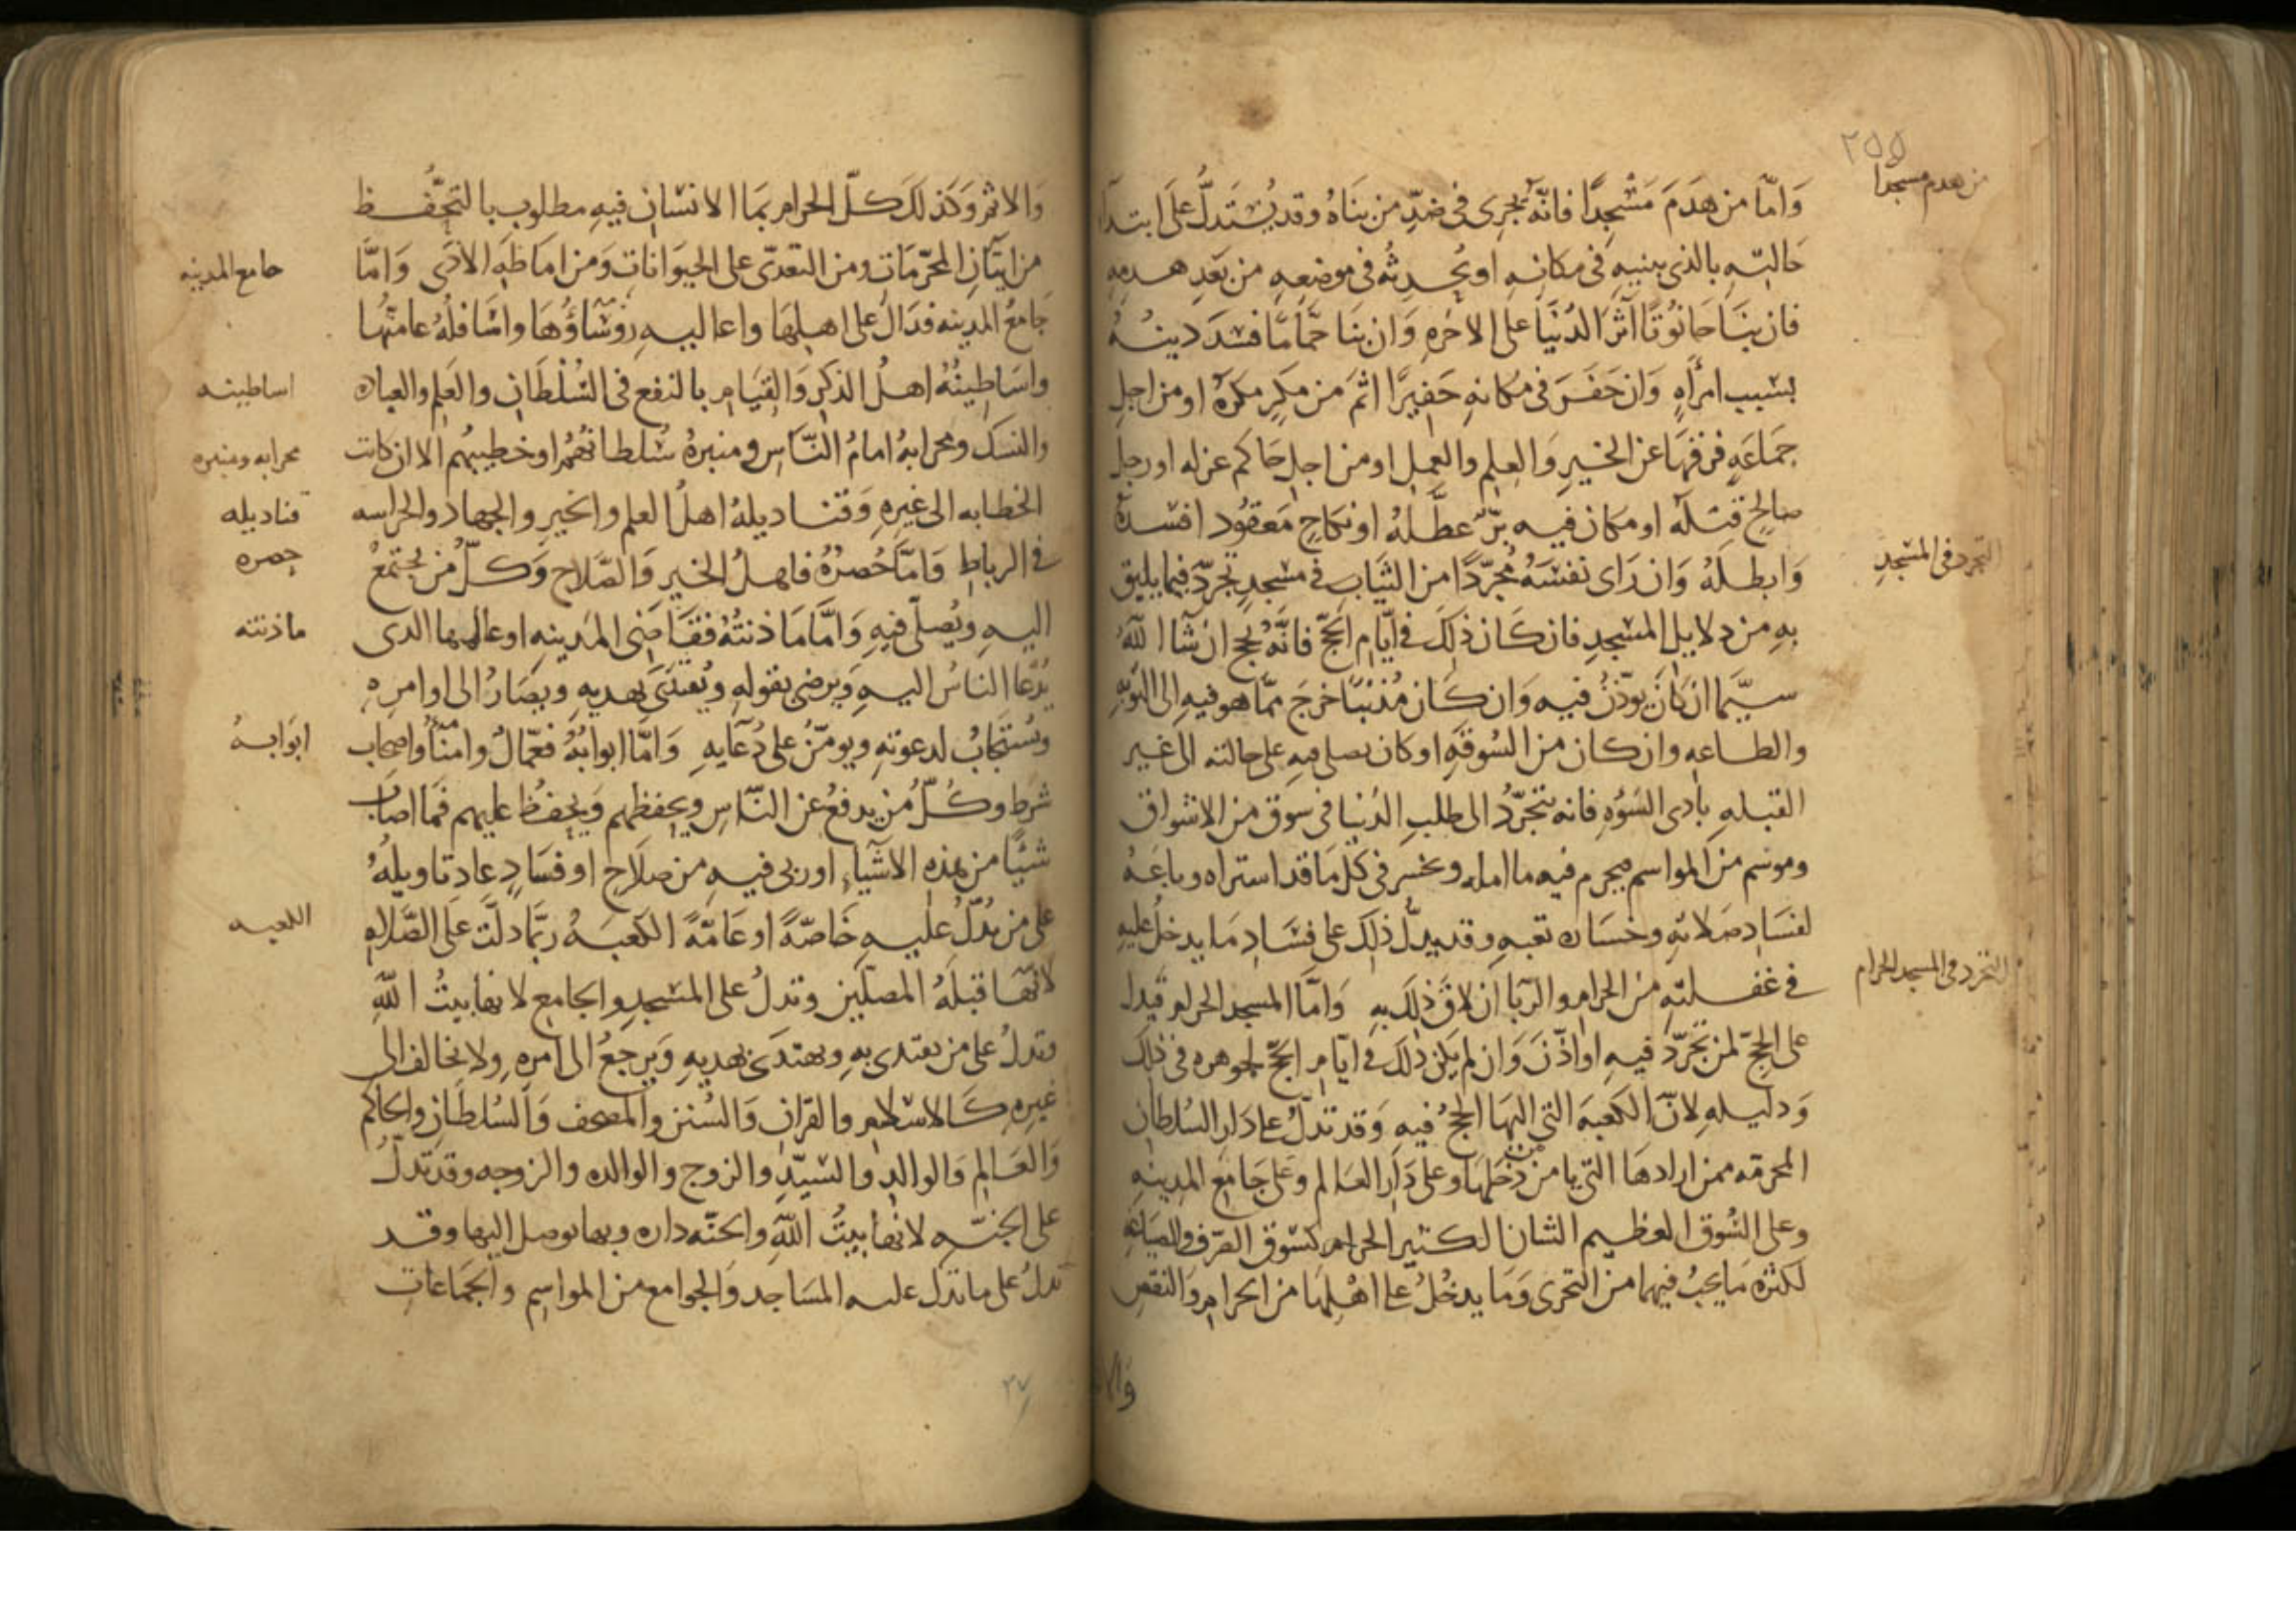 ٢٥٥
من هدم مسجدا
وَامّا من هدَمَ مَسْجِدًا فانّه يجرِى فى ضدِّ من بنَاهُ وقد يُستَدلُّ على ابتدآ
حَالتِه بالذى يبنيهِ فى مكانهِ او يُحدِثُه فى موضعِهِ من بَعدِ هدمِهِ
فان بنَا حَانوُتًا آثَرَ الدُنيَا على الاخرهِ وَان بنَا حمَّامًا فسَدَ دينُهُ
بسَبب امرأهٍ وَان حَفَرَ فى مكانهِ حَفِيرًا اثمَ من مكرٍ مكرَهُ او من اجلِ
جمَاعَهٍ فرّقهَا عن الخيرِ وَالعِلمِ والعملِ او من اجلِ حَاكم عزله او رجلٍ
صالِحٍ قتلهُ او مكان فيه برّ عطَّلهُ او نكاحٍ مَعقوُد افسدهُ
التجرد فى المسْجدِ
وَابطلَهُ وَان رَاى نفسَهُ مُجرّدًا من الثيَاب فى مسْجدٍ تجرّدَ فيما يليق
بهِ من دلايل المسْجدِ فان كَان ذلِكَ فى ايّام الحَجّ فانَّهُ يحج ان شَآ اللّهُ
سيَّما ان كانَ يوذّنُ فيه وَان كَان مُذنبًا خرَجَ ممّا هو فيهِ الى التوَبهِ
والطاعهِ وان كان من السُوقَهِ او كان يصلى فيهِ على حالته الى غير
القبلهِ بادى السَوْءهِ فانه يتجَرّدُ الى طلبِ الدُنيا فى سوق من الاسْواق
وموسم من المواسم فيحرم فيه ما امله ويخسر فى كل مَا قد استراه وباعَهُ
لفسَادِ صَلاتهِ وخسَاره تعبهِ وقد يدلّ ذلِكَ على فسَادِ مَا يدخلُ عليهِ
التجرد فى المسجد الحرام
فى غفلتهِ من الحرامِ والرّبا ان لاقَ ذلِكَ بهِ وَامّا المسجد الحرام فيدل
على الحِجّ لمن تجرّدَ فيهِ او اذّنَ وَان لم يكن ذلِكَ فى ايّام الحَجّ لجوهره فى ذلِكَ
وَدليلهِ لانّ الكَعبَه التى اليهَا الحجُّ فيهِ وَقد تدلُّ على دَارِ السُلطان
المحرمه ممن ارادهَا التى يامن من دَخَلهَا وعلَى دَار العَالم وعلى جَامِع المدِينهِ
وعلى السُّوق العظيم الشان الكثير الحرام كسُوق الصّرف والصيَاغهِ
لكثره مَا يجبُ فيهَا من التحرى وَمَا يدخُلُ على اهْلِهَا من الحرام والنقص
والا
وَالاثم وَكذلكَ كلّ الحرام بمَا الانسَان فيهِ مطلوب بالتحفُّظ
جامع المدينه
من ايتَانِ المحرّمَات ومن التعدّى على الحيَوانات وَمن امَاطهِ الاذَى وَامَّا
جَامعُ المدينه فدَالّ على اهلِهَا واعاليهِ روُسَاؤُهَا واسَافلُهُ عامتُهَا
اساطينه
واسَاطِينُهُ اهلُ الذكرِ وَالقيَامِ بالنفع فى السُلطَانِ والعَلم والعباده
محرابه ومنبره
والنسك ومحرابهُ امامُ النّاس ومنبرهُ سُلطانهُمْ او خطيبهُم الا ان كانت
قناديله
الخطابه الى غيرِهِ وَقناديلهُ اهلُ العلمِ والخيرِ والجهاد والحراسه
حصره
فى الرباطِ وَامَّا حُصرُهُ فاهلُ الخيرِ وَالصَّلاحِ وَكلّ من يجتمعُ
ماذنته
اليهِ ويُصلّى فيهِ وَامَّا مَاذنتُهُ فقَاضِى المدِينهِ او عالمها الذى
يُدّعَا الناسُ اليهِ وَيرضى بقولهِ ويُقتدَى بهديهِ ويصَارُ الى اوامرِهِ
ابوَابهُ
ويُستجَابُ لدعوتهِ ويومّنُ على دُعَآيهِ وَامَّا ابوابُهُ فعّمالُ وامَنآ واصحاب
شرَطٍ وكُلُّ من يدفعُ عن النّاسِ ويحفظهم وَيحفظُ عليهم فمَا اصَابَ
شيئًا من هذه الاشَيآءِ او رىى فيهِ من صلاحٍ او فسَادٍ عاد تاويلهُ
الكعبه
على من يَدُلّ عليهِ خَاصّهً او عَامّهً الكعبَهُ ربّما دلّت على الصَّلاهِ
لانّهَا قبلَهُ المصلّين وتدلُ على المسْجدِ والجامعِ لانها بيتُ اللّهِ
وتدلُ على من يقتدى بهِ ويهتدَى بهديهِ وَيرجعُ الى امرِهِ ولا يخالف الى
غيرِهِ كَالاسْلامِ والقرانِ وَالسُنن والمصحف وَالسُلطَانِ والحاكم
وَالعَالِم وَالوالدِ والسيّدِ والزوج والوالده والزوجه وقد تدلُّ
على الجنّهِ لانها بيتُ اللّهِ والجنّه داره وبها يوصل اليها وقد
تدلُ على ما تدل عليه المسَاجد وَالجوامع من المواسم والجمَاعَاتِ
٢٧